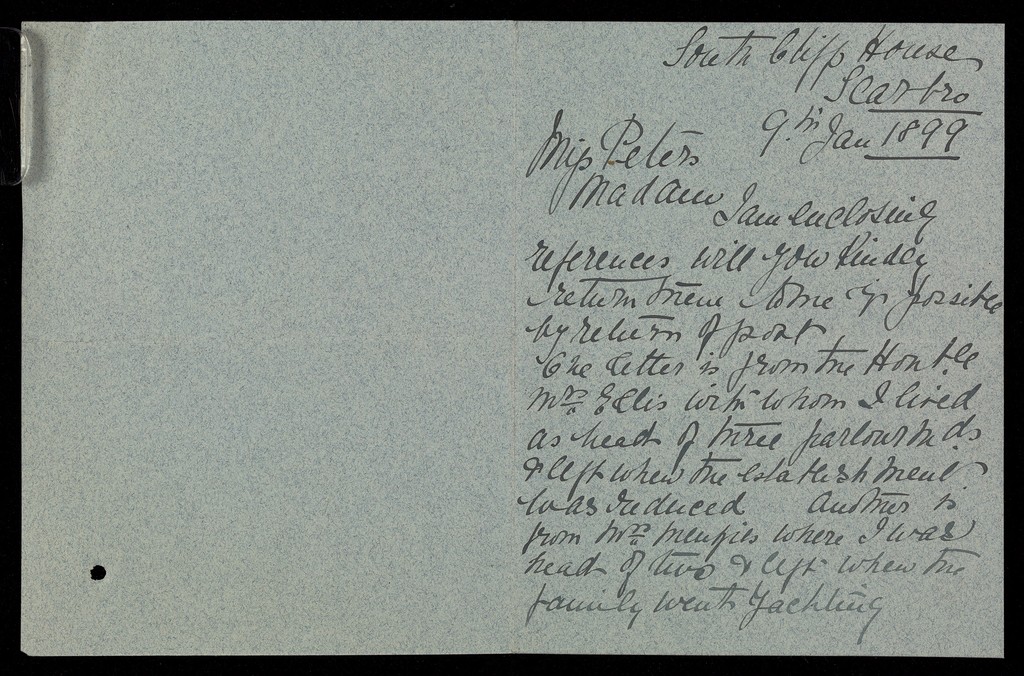 South Cliff House
Scarbro
9th Jan 1899
Miss Peters
Madam I am enclosing
references will you kindly
return them to me if possible
by return of post
One letter is from the Honble
Mrs Ellis with whom I lived
as head of three parlour mds
& left when the establishment
was reduced Another is
from Mrs Menzies where I was
head of two & left when the
family went yachting